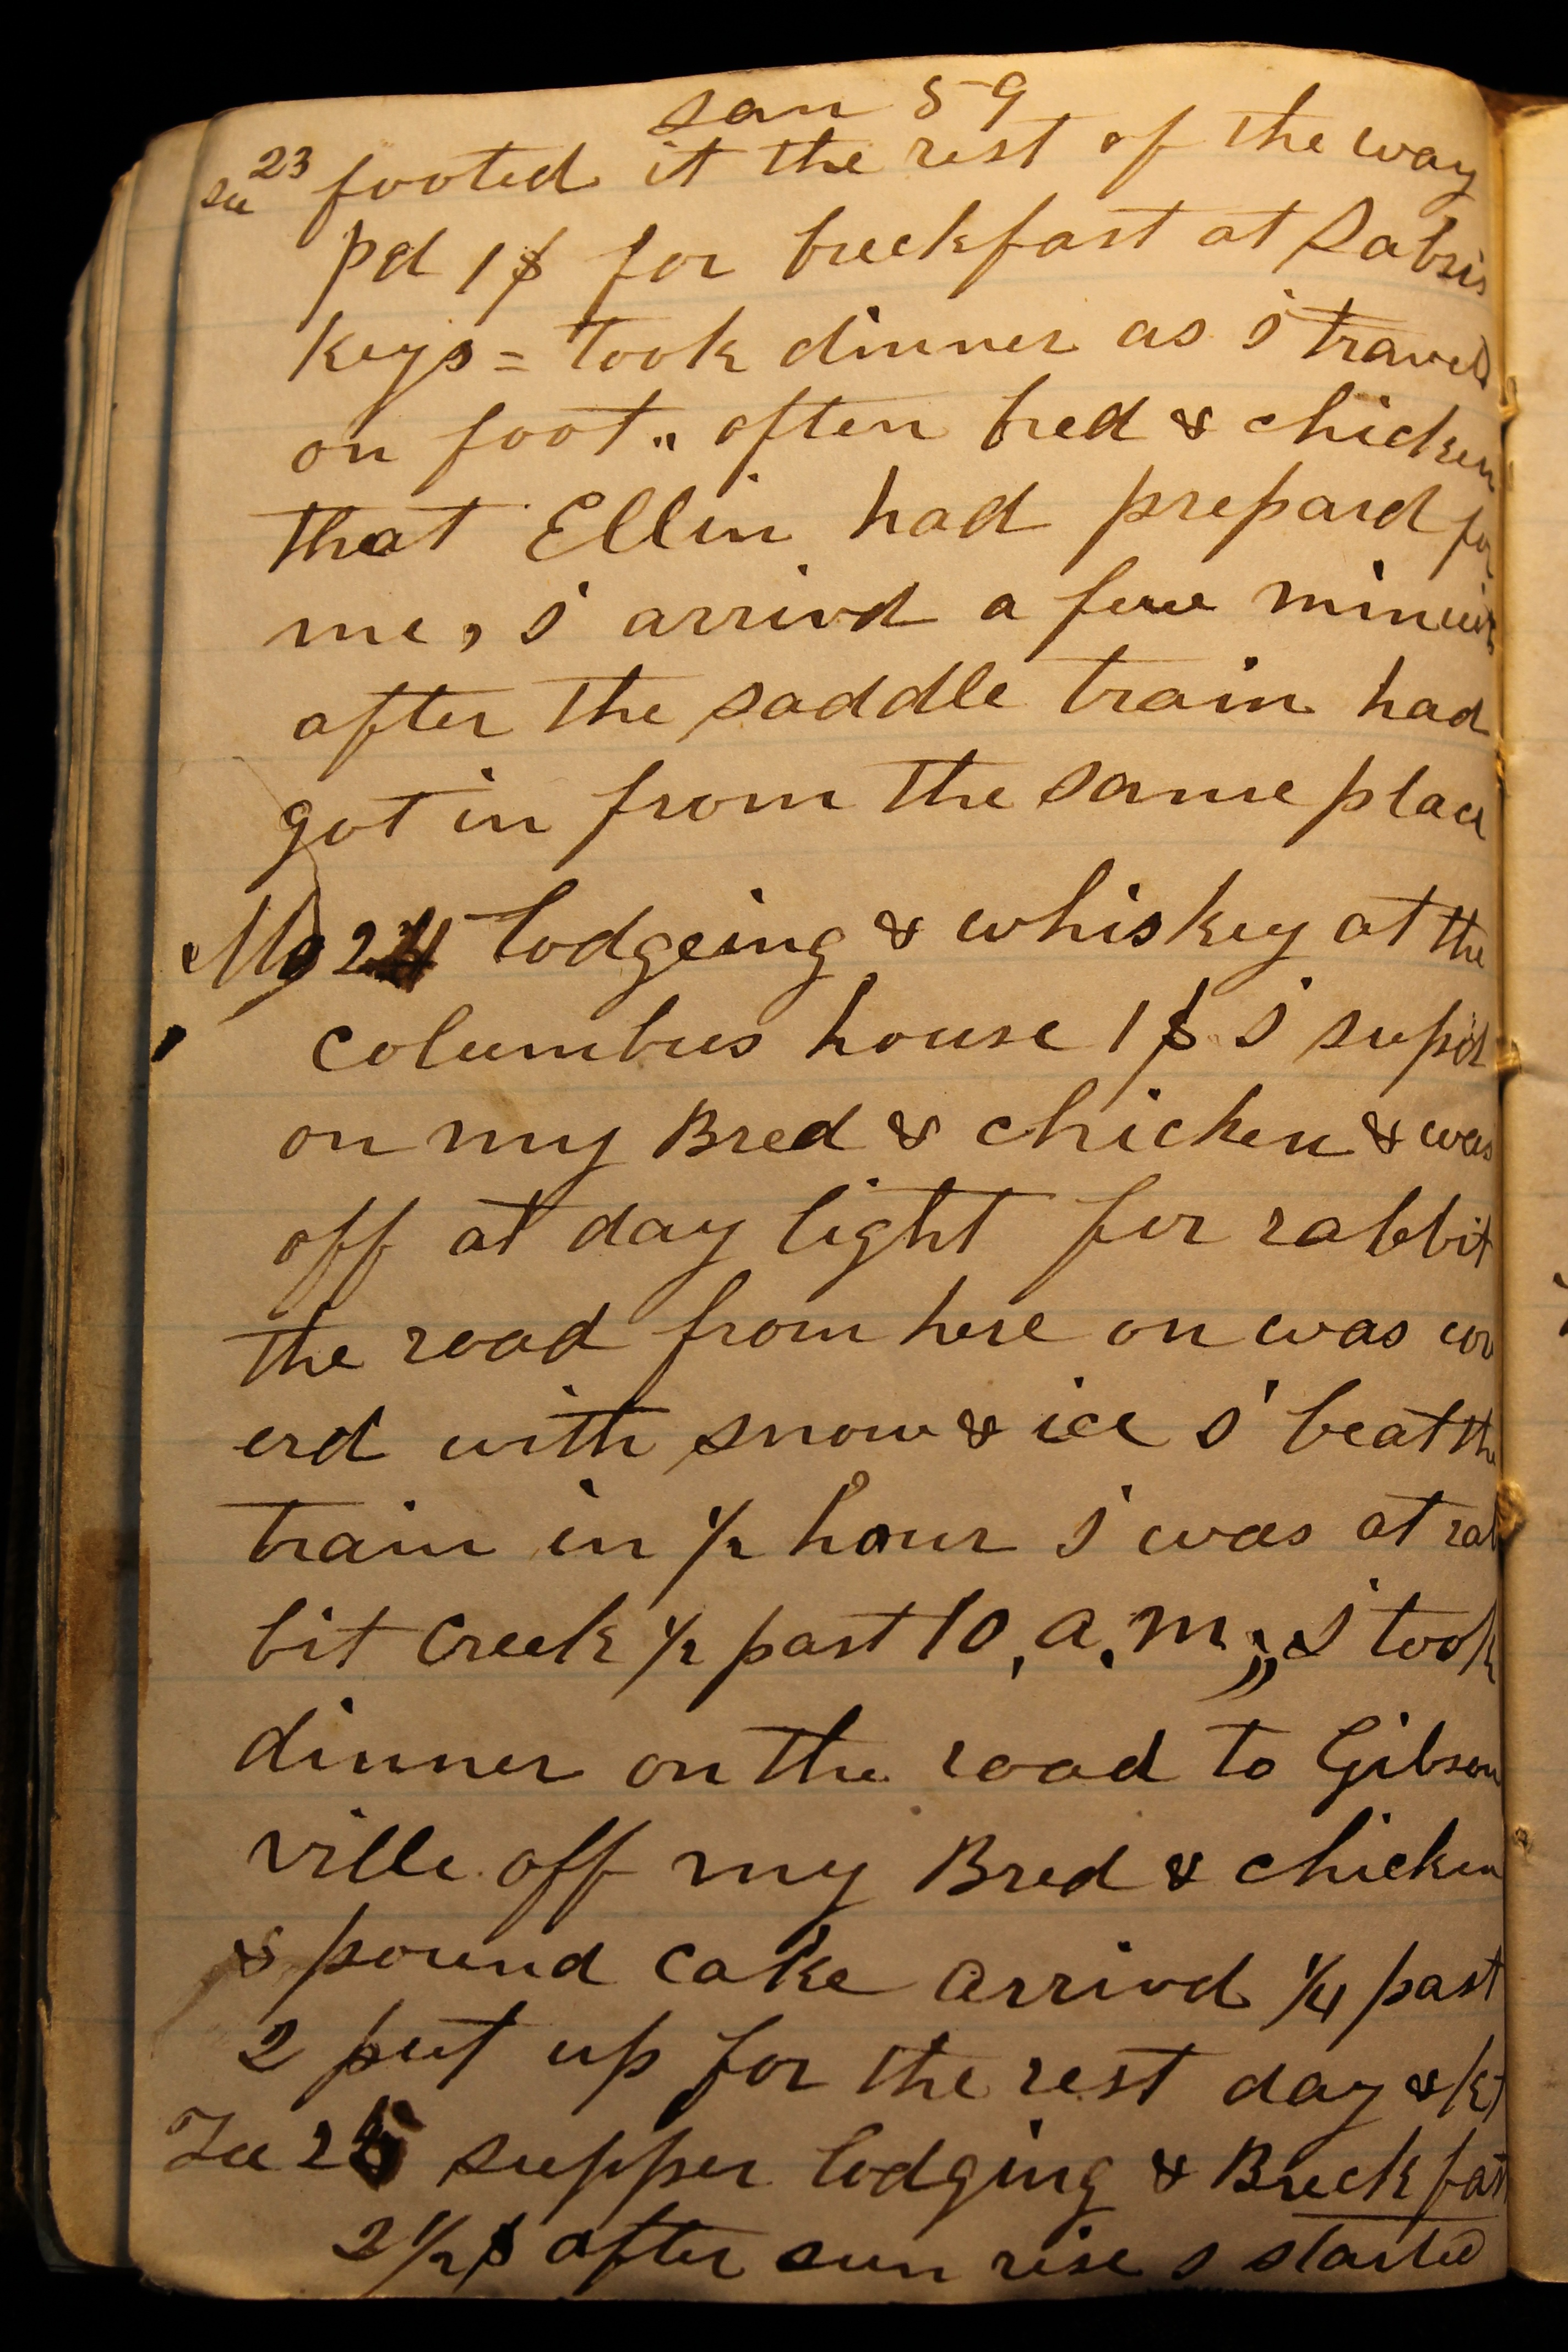 Jan 59
Su 23 footed it the rest of the way
pd 1$ for breckfast at Sabris
keys = took dinner as I traveld
on foot „ often bred & chicken
that Ellin had prepard for
me, I arrivd a few minuits
after the saddle train had
got in from the same place
Mo 24 lodgeing & whiskey at the
Columbus house 1$ I supd
on my Bred & chicken & was
off at day light for rabbit
the road from here on was cov
erd with snow & ice I beat the
train in 1/2 hour I was at rab
bit Creek 1/2 past 10, a, m,; I took
dinner on the road to Gibson
ville off my Bred & chicken
& pound cake arrivd 1/4 past
2 put up for the rest day &
Tu 25 supper lodging & Breckfast
2 1/2 $ after sun rise I started